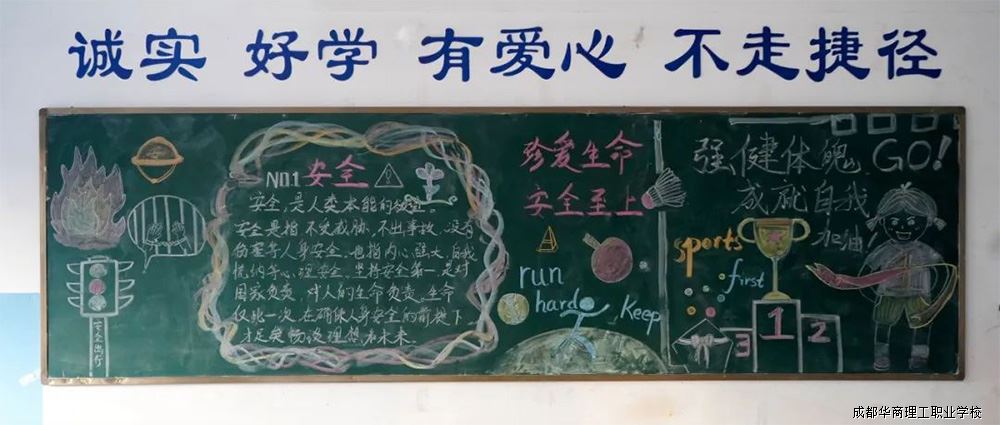 诚实 好学 有爱心 不走捷径
NO.1 安全
安全,是人类本能的欲望。
安全是指不受威胁,不出事故,没有
伤害等人身安全,也指内心强大,自我
悦纳等心理安全,坚持安全第一,是对
国家负责,对人的生命负责。生命
仅此一次,在确保人身安全的前提下
才足矣畅谈理想和未来。
安全出行
珍爱生命
安全至上
run
hard
Keep
强健体魄 GO!
成就自我
加油!
sports
first
1
2
3
成都华商理工职业学校